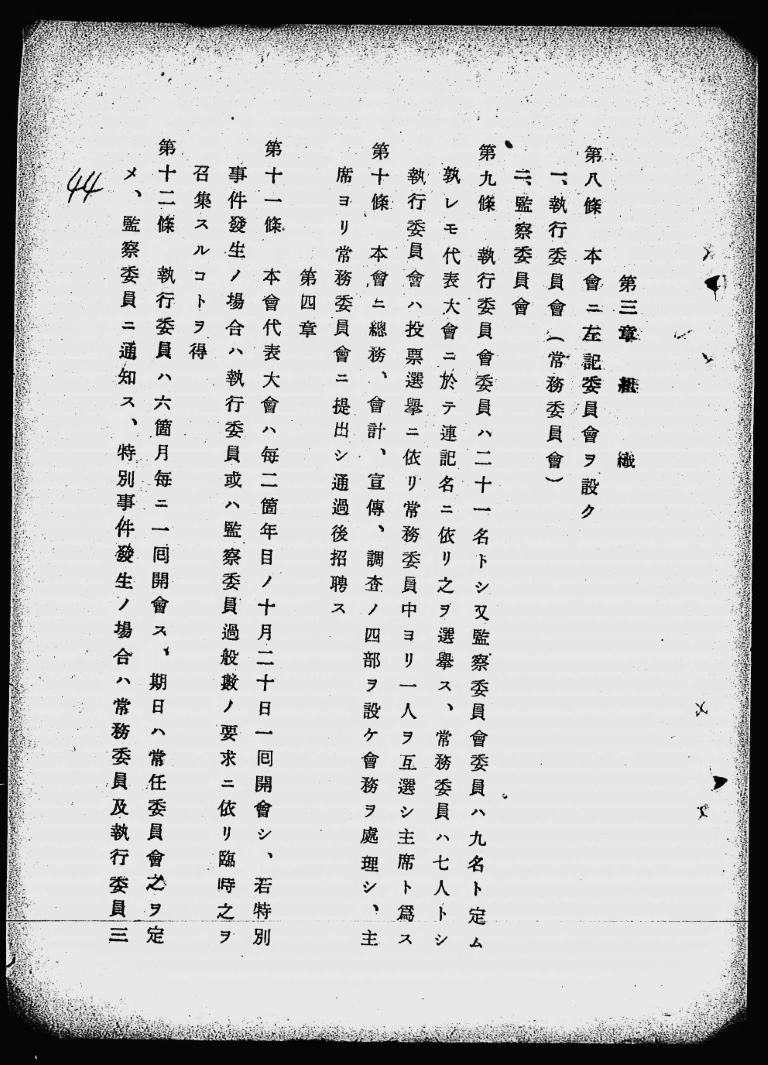 第三章　組　織
第八條　本會ニ左記委員會ヲ設ク
一、執行委員會（常務委員會）
二、監察委員會
第九條　執行委員會委員ハ二十一名トシ又監察委員會委員ハ九名ト定ム
孰レモ代表大會ニ於テ連記名ニ依リ之ヲ選擧ス、常務委員ハ七人トシ
執行委員會ハ投票選擧ニ依リ常務委員中ヨリ一人ヲ互選シ主席ト爲ス
第十條　本會ニ總務、會計、宣傳、調査ノ四部ヲ設ケ會務ヲ處理シ、主
席ヨリ常務委員會ニ提出シ通過後招聘ス
第四章
第十一條　本會代表大會ハ每二箇年目ノ十月二十日一囘開會シ、若特別
事件發生ノ場合ハ執行委員或ハ監察委員過般數ノ要求ニ依リ臨時之ヲ
召集スルコトヲ得
第十二條　執行委員ハ六箇月每ニ一囘開會ス、期日ハ常任委員會之ヲ定
メ、監察委員ニ通知ス、特別事件發生ノ場合ハ常務委員及執行委員三
44